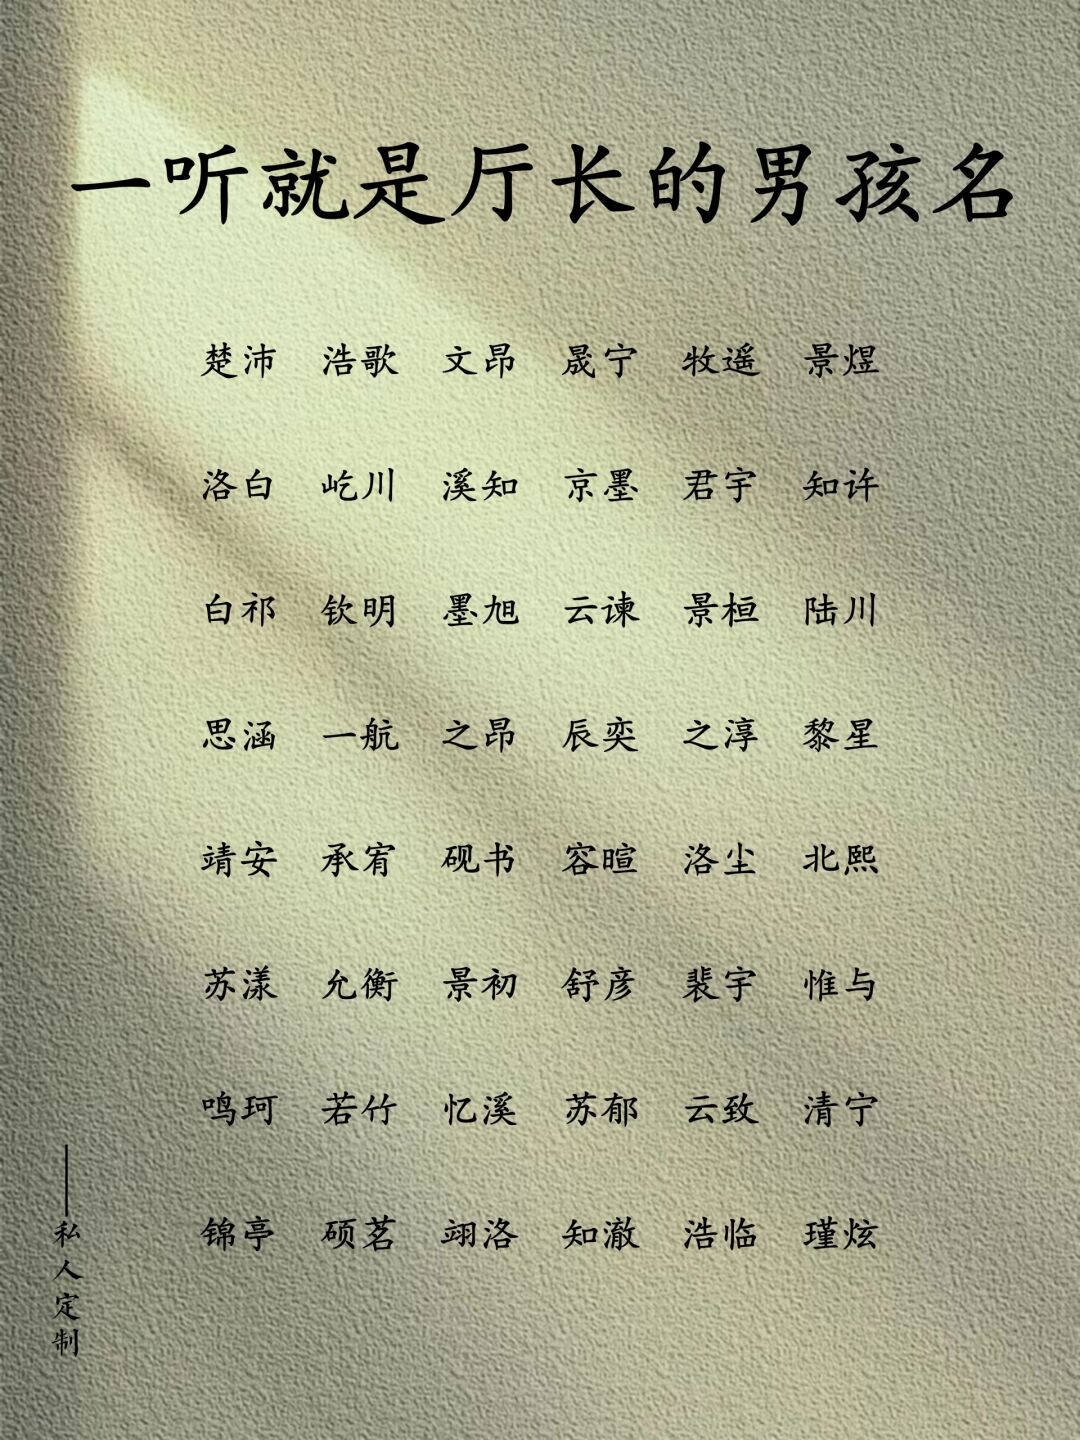 一听就是厅长的男孩名
楚沛 浩歌 文昂 晟宁 牧遥 景煜
洛白 屹川 溪知 京墨 君宇 知许
白祁 钦明 墨旭 云谏 景桓 陆川
思涵 一航 之昂 辰奕 之淳 黎星
靖安 承宥 砚书 容暄 洛尘 北熙
苏漾 允衡 景初 舒彦 裴宇 惟与
鸣珂 若竹 忆溪 苏郁 云致 清宁
锦亭 硕茗 翊洛 知澈 浩临 瑾炫
——私人定制